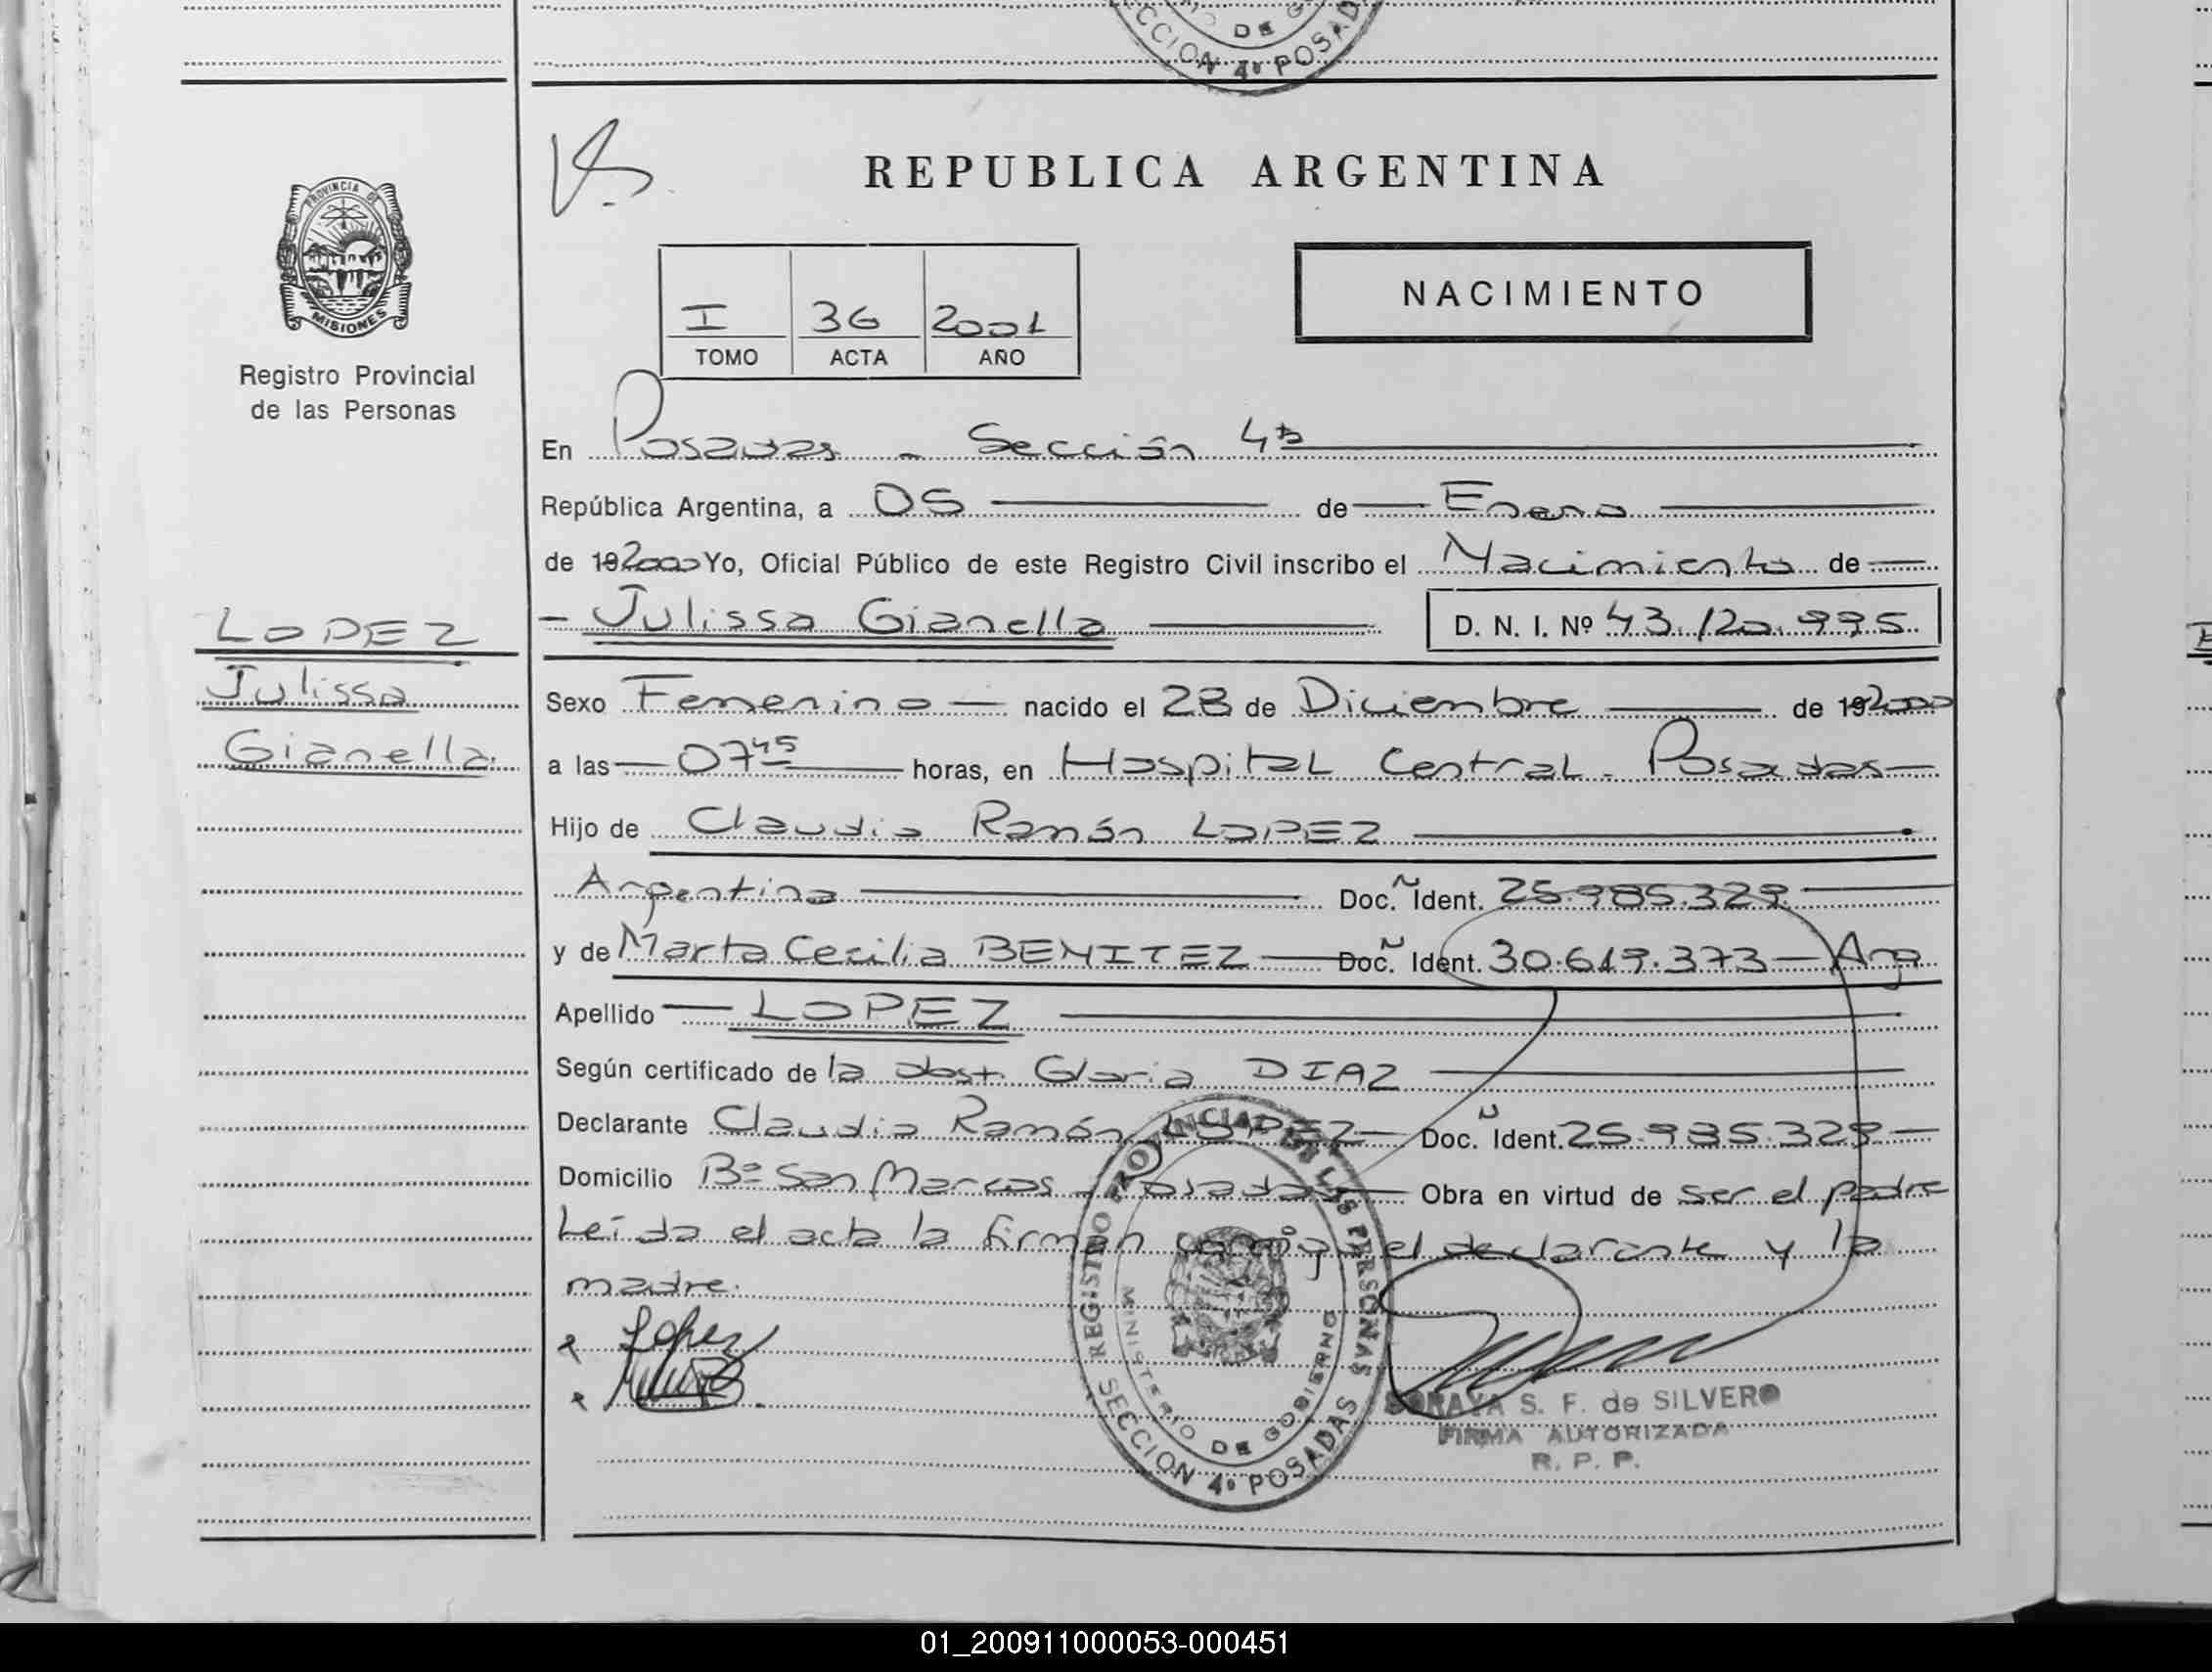 DE G
CCION 4º POSAD
REPUBLICA ARGENTINA
PROVINCIA DE
MISIONES
Registro Provincial
de las Personas
I 36 2001
TOMO ACTA AÑO
NACIMIENTO
En Posadas - Sección 4ta
República Argentina, a 05 de Enero
de 192000 Yo, Oficial Público de este Registro Civil inscribo el Nacimiento de
LOPEZ
Julissa
Gianella.
- Julissa Gianella D. N. I. Nº 43.120.995.
Sexo Femenino nacido el 28 de Diciembre de 192000
a las 07 45 horas, en Hospital Central - Posadas
Hijo de Claudio Ramón LOPEZ
Argentina Doc. Ident. 25.985.329.
y de Marta Cecilia BENITEZ Doc. Ident. 30.619.373 Arg
Apellido LOPEZ
Según certificado de la obst. Gloria DIAZ
Declarante Claudio Ramón LOPEZ Doc. Ident. 25.985.329
Domicilio Bº San Marcos - Posadas Obra en virtud de ser el padre
Leída el acta la firman conmigo el declarante y la
madre.
Lopez
REGISTRO PROVINCIAL DE LAS PERSONAS
MINISTERIO DE GOBIERNO
SECCION 4º POSADAS
SORAYA S. F. de SILVERO
FIRMA AUTORIZADA
R. P. P.
01_200911000053-000451